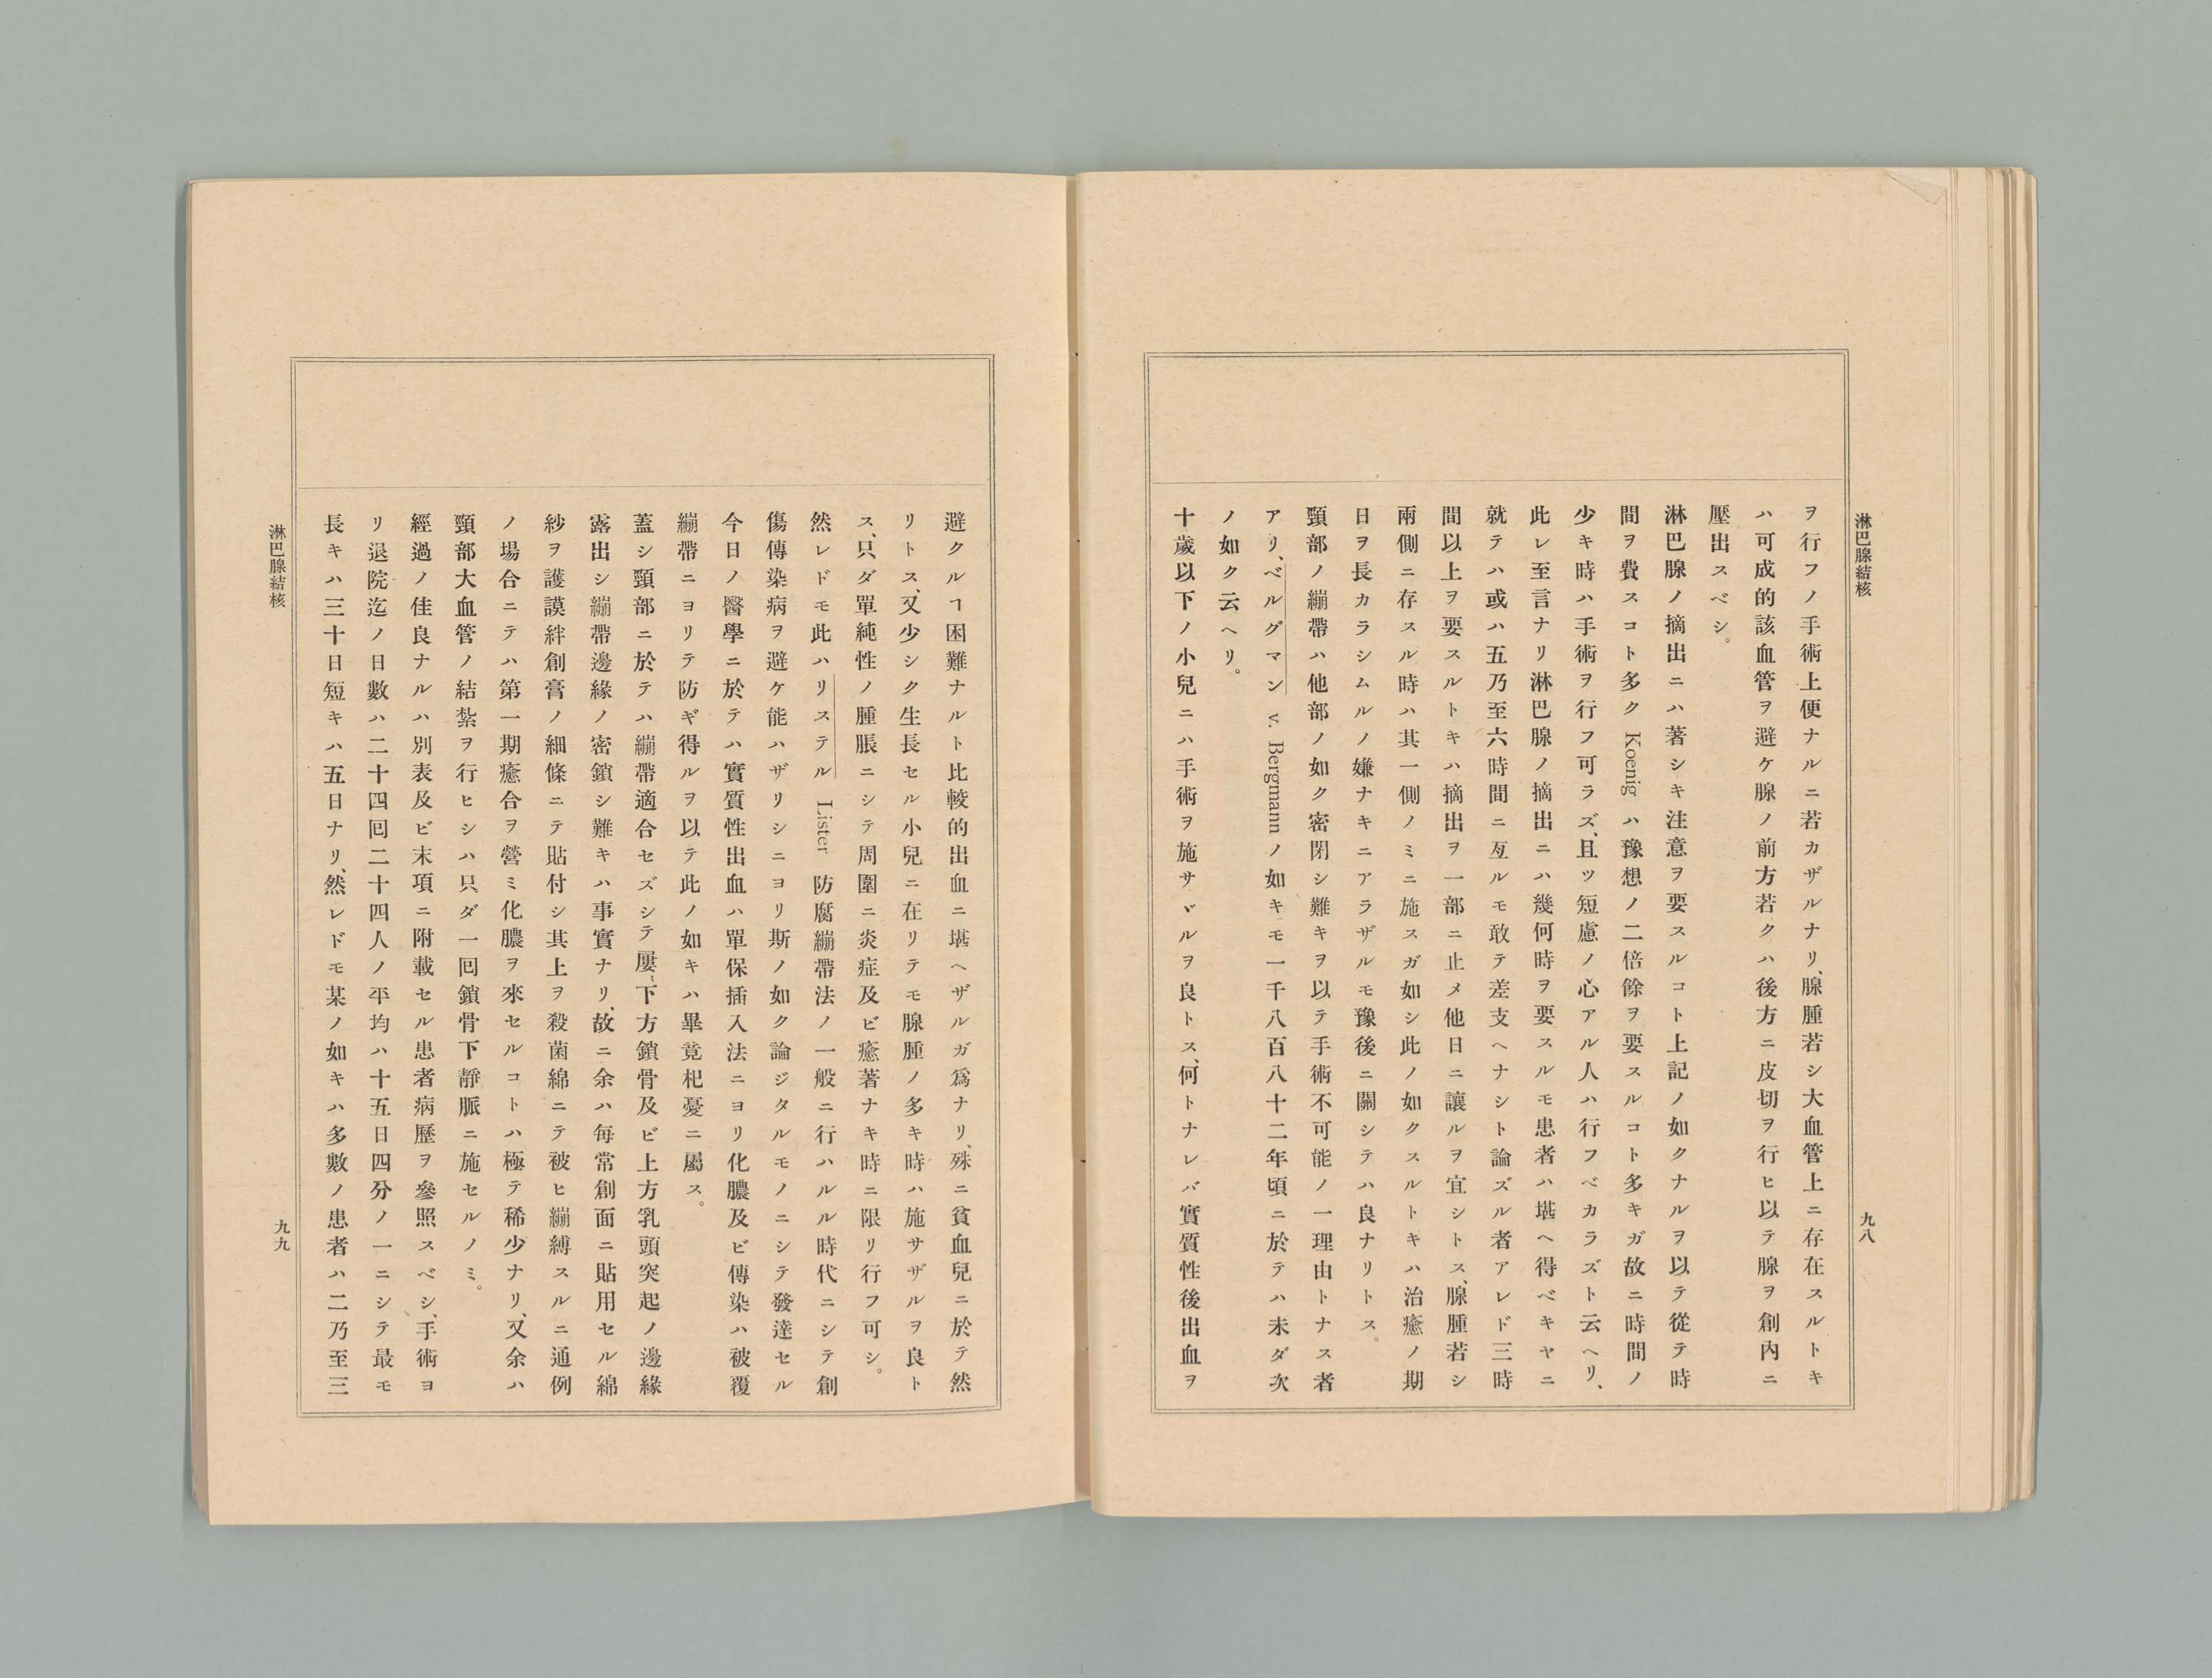 淋巴腺結核
九八
ヲ行フノ手術上便ナルニ若カザルナリ、腺腫若シ大血管上ニ存在スルトキ
ハ可成的該血管ヲ避ケ腺ノ前方若クハ後方ニ皮切ヲ行ヒ以テ腺ヲ創內ニ
壓出スベシ。
淋巴腺ノ摘出ニハ著シキ注意ヲ要スルコト上記ノ如クナルヲ以テ從テ時
間ヲ費スコト多ク Koenig ハ豫想ノ二倍餘ヲ要スルコト多キガ故ニ時間ノ
少キ時ハ手術ヲ行フ可ラズ、且ツ短慮ノ心アル人ハ行フベカラズト云ヘリ、
此レ至言ナリ淋巴腺ノ摘出ニハ幾何時ヲ要スルモ患者ハ堪ヘ得ベキヤニ
就テハ或ハ五乃至六時間ニ亙ルモ敢テ差支ヘナシト論ズル者アレド三時
間以上ヲ要スルトキハ摘出ヲ一部ニ止メ他日ニ讓ルヲ宜シトス、腺腫若シ
兩側ニ存スル時ハ其一側ノミニ施スガ如シ此ノ如クスルトキハ治癒ノ期
日ヲ長カラシムルノ嫌ナキニアラザルモ豫後ニ關シテハ良ナリトス。
頸部ノ繃帶ハ他部ノ如ク密閉シ難キヲ以テ手術不可能ノ一理由トナス者
アリ、ベルグマン v. Bergmann ノ如キモ一千八百八十二年頃ニ於テハ未ダ次
ノ如ク云ヘリ。
十歲以下ノ小兒ニハ手術ヲ施サヾルヲ良トス、何トナレバ實質性後出血ヲ
避クルヿ困難ナルト比較的出血ニ堪ヘザルガ爲ナリ、殊ニ貧血兒ニ於テ然
リトス、又少シク生長セル小兒ニ在リテモ腺腫ノ多キ時ハ施サザルヲ良ト
ス、只ダ單純性ノ腫脹ニシテ周圍ニ炎症及ビ癒著ナキ時ニ限リ行フ可シ。
然レドモ此ハリステル Lister 防腐繃帶法ノ一般ニ行ハルル時代ニシテ創
傷傳染病ヲ避ケ能ハザリシニヨリ斯ノ如ク論ジタルモノニシテ發達セル
今日ノ醫學ニ於テハ實質性出血ハ單保插入法ニヨリ化膿及ビ傳染ハ被覆
繃帶ニヨリテ防ギ得ルヲ以テ此ノ如キハ畢竟杞憂ニ屬ス。
蓋シ頸部ニ於テハ繃帶適合セズシテ屢〻下方鎖骨及ビ上方乳頭突起ノ邊緣
露出シ繃帶邊緣ノ密鎖シ難キハ事實ナリ、故ニ余ハ每常創面ニ貼用セル綿
紗ヲ護謨絆創膏ノ細條ニテ貼付シ其上ヲ殺菌綿ニテ被ヒ繃縛スルニ通例
ノ場合ニテハ第一期癒合ヲ營ミ化膿ヲ來セルコトハ極テ稀少ナリ、又余ハ
頸部大血管ノ結紮ヲ行ヒシハ只ダ一回鎖骨下靜脈ニ施セルノミ。
經過ノ佳良ナルハ別表及ビ末項ニ附載セル患者病歷ヲ參照スベシ、手術ヨ
リ退院迄ノ日數ハ二十四回二十四人ノ平均ハ十五日四分ノ一ニシテ最モ
長キハ三十日短キハ五日ナリ、然レドモ某ノ如キハ多數ノ患者ハ二乃至三
淋巴腺結核
九九